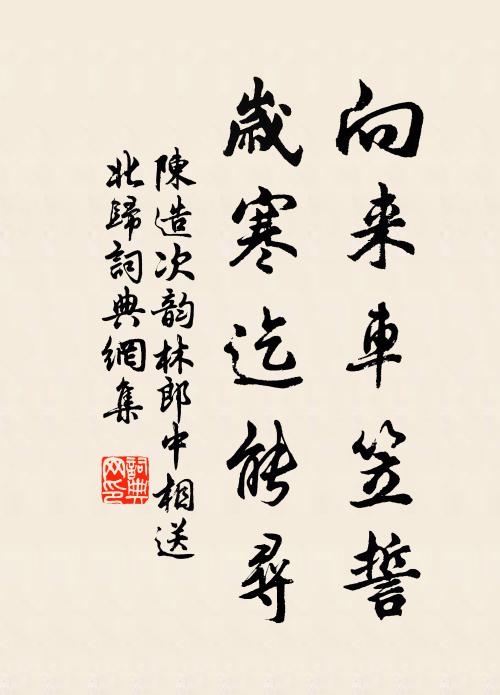 向来車笠誓
歲寒迄能尋
陳造次韵林郎中相送
北歸詞典網集
詞典网印